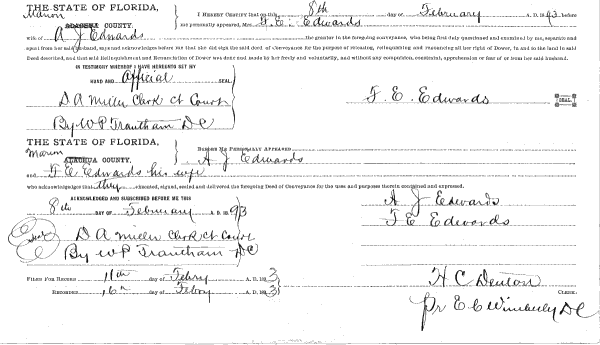 THE STATE OF FLORIDA, I HEREBY CERTIFY that on this 8th day of February A. D. 1893 before
Marion ALACHUA COUNTY. me personally appeared, Mrs. F. E. Edwards
wife of A J Edwards the grantor in the foregoing conveyance, who being first duly questioned and examined by me, separate and
apart from her said husband, says and acknowledges before me that she did sign the said deed of Conveyance for the purpose of releasing, relinquishing and renouncing all her right of Dower, in and to the land in said
Deed described, and that said Relinquishment and Renunciation of Dower was done and made by her freely and voluntarily, and without any compulsion, constraint, apprehension or fear of or from her said husband.
IN TESTIMONY WHEREOF I HAVE HEREUNTO SET MY
HAND AND Official
SEAL
D A Miller Clerk Ct Court F. E. Edwards SEAL.
By W P Trautham DC
THE STATE OF FLORIDA, BEFORE ME PERSONALLY APPEARED
Marion ALACHUA COUNTY, A J Edwards
and F E Edwards his wife
who acknowledges that they executed, signed, sealed and delivered the foregoing Deed of Conveyance for the uses and purposes therein contained and expressed.
ACKNOWLEDGED AND SUBSCRIBED BEFORE ME THIS
8th DAY OF February A. D. 1893
A J Edwards
F E Edwards
Seal D A Miller Clerk Ct Court
By W P Trautham DC
FILED FOR RECORD 11th day of Febry A. D. 1893 H C Denton
RECORDED 16th day of Febry 1893 CLERK.
Pr E C Wimberly DC